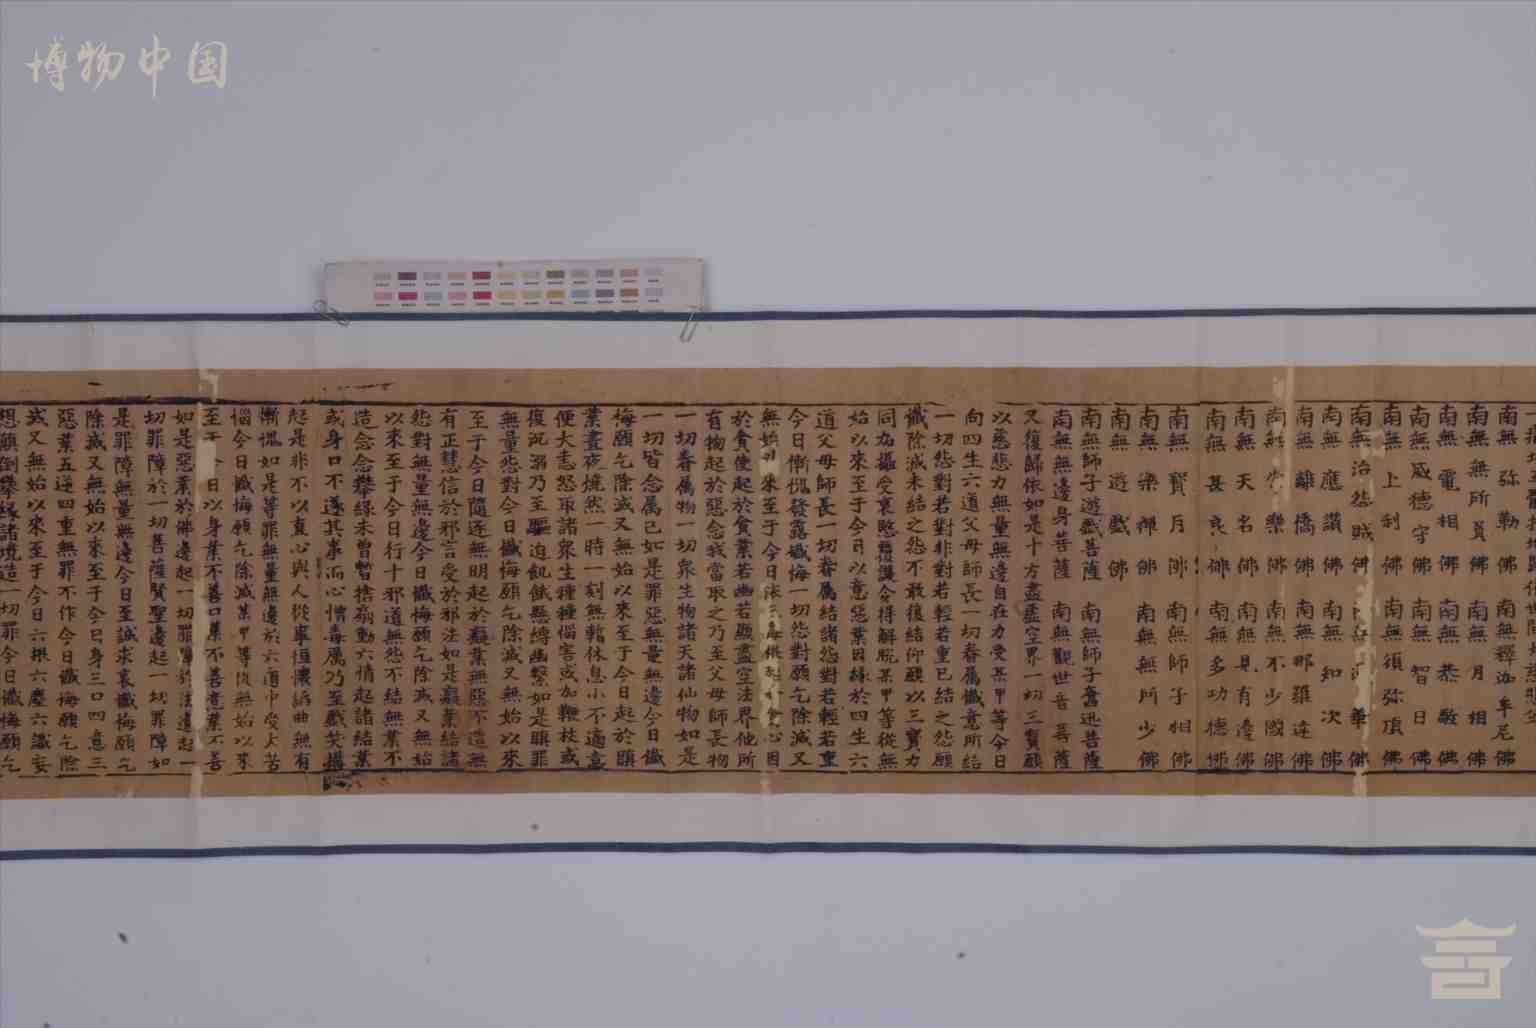 博物中国
南無弥勒佛 南無釋迦牟尼佛
南無無所負佛 南無月相佛
南無電相佛 南無恭敬佛
南無威德守佛 南無智日佛
南無上利佛 南無須弥頂佛
南無治怨賊佛 南無華佛
南無應讚佛 南無知次佛
南無離憍佛 南無那羅達佛
南無樂佛 南無不少國佛
南無天名佛 南無見有邊佛
南無甚良佛 南無多功德佛
南無寳月佛 南無師子相佛
南無樂禪佛 南無無所少佛
南無遊戲佛
南無師子遊戲菩薩 南無師子奮迅菩薩
南無無邊身菩薩 南無觀世音菩薩
又復歸依如是十方盡虛空界一切三寳願
以慈悲力無量無邊自在力受某甲等今日
向四生六道父母師長一切眷属懺意所結
一切怨對若對非對若輕若重已結之怨願
懺除滅未結之怨不敢復結仰願以三寳力
同為攝受哀愍覆護令得解脫某甲等從無
始以來至于今日以意惡業因緣於四生六
道父母師長一切眷属結諸怨對若輕若重
今日慚愧發露懺悔一切怨對願乞除滅又
無始以來至于今日依三毒根起貪心因
於貪使起於貪業若幽若顯盡空法界他所
有物起於惡念我當取之乃至父母師長物
一切眷属物一切衆生物諸天諸仙物如是
一切皆念属已如是罪惡無量無邊今日懺
悔願乞除滅又無始以來至于今日起於瞋
業晝夜燒然一時一刻無暫休息小不適意
便大恚怒取諸衆生種種惱害或加鞭杖或
復沉溺乃至驅迫飢餓懸縛幽繫如是瞋罪
無量怨對今日懺悔願乞除滅又無始以來
至于今日隨逐無明起於癡業無惡不造無
有正慧信於邪言受於邪法如是癡業結諸
怨對無量無邊今日懺悔願乞除滅又無始
以來至于今日行十邪道無怨不結無業不
造念念攀緣未曾暫捨扇動六情起諸結業
或身口不遂其事而心憎毒厲乃至戲笑構
起是非不以直心與人從事恒懷諂曲無有
慚愧如是等罪無量無邊於六道中受大苦
惱今日懺悔願乞除滅某甲等從無始以來
至于今日以身業不善口業不善意業不善
如是惡業於佛邊起一切罪障於法邊起一
切罪障於一切菩薩賢聖邊起一切罪障如
是罪障無量無邊今日至誠求哀懺悔願乞
除滅又無始以來至于今日身三口四意三
惡業五逆四重無罪不作今日懺悔願乞除
滅又無始以來至于今日六根六塵六識妄
想顛倒攀緣諸境造一切罪今日懺悔願乞